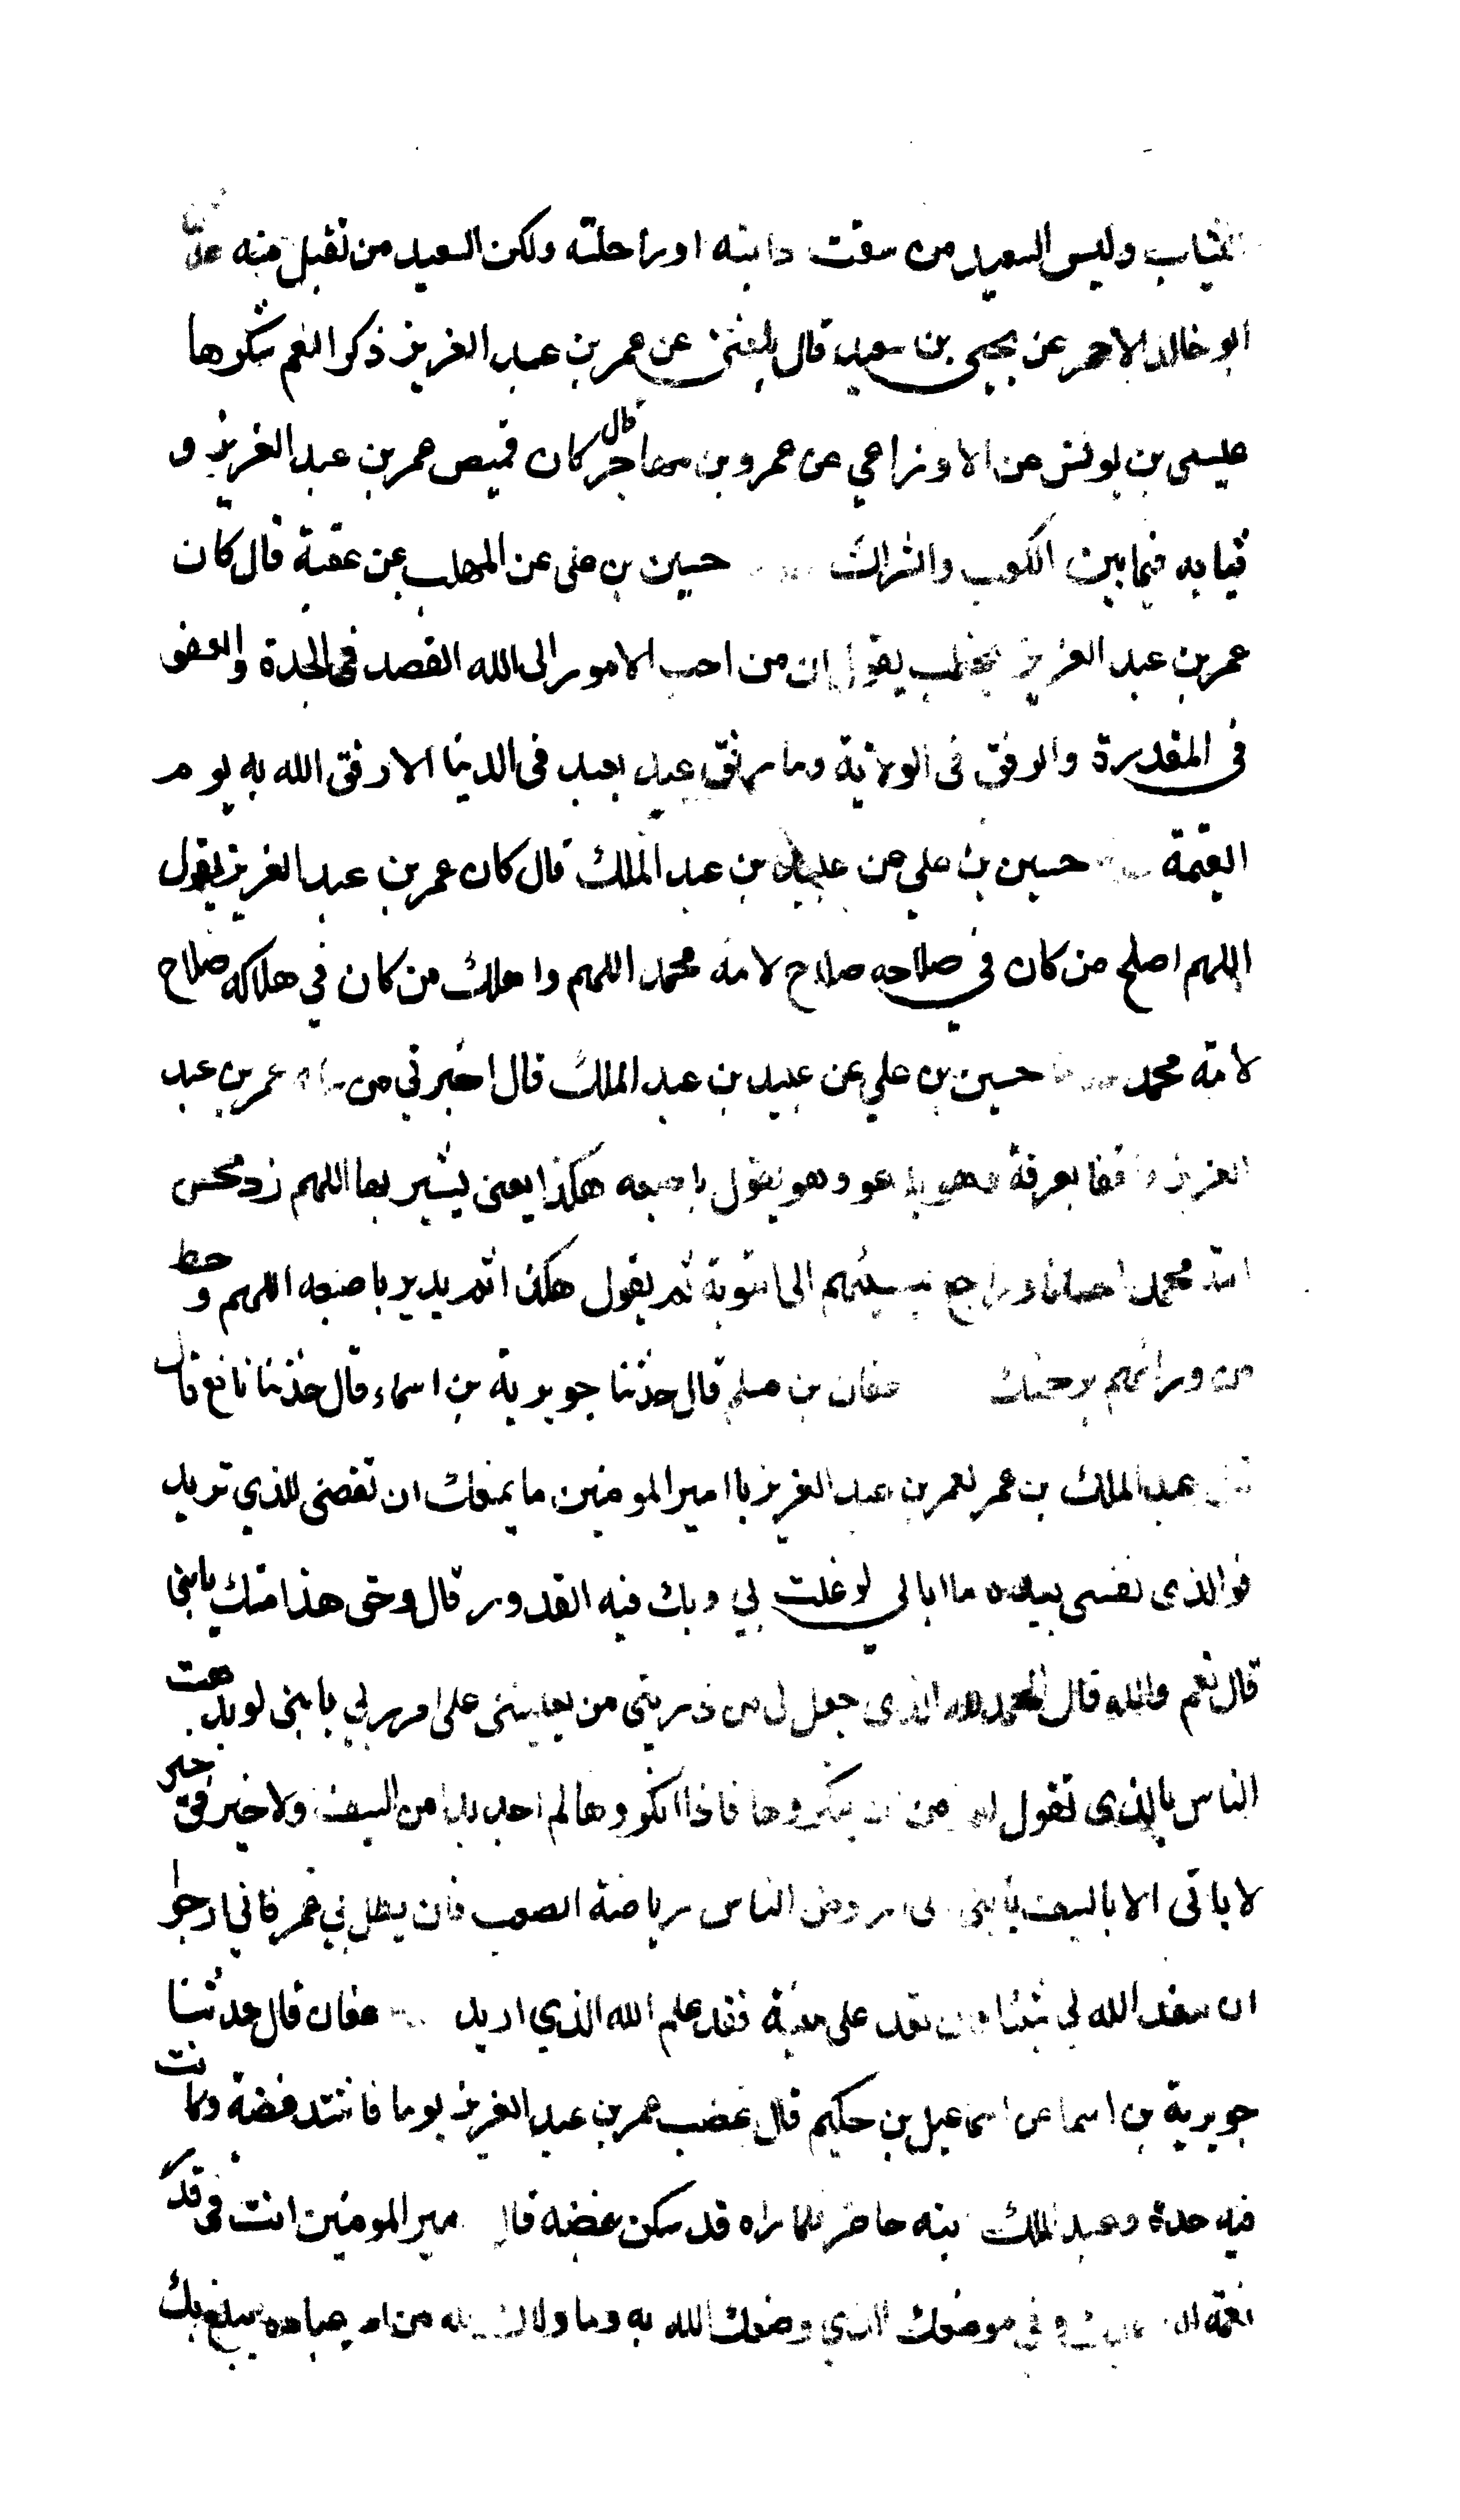 الثياب وليس السعيد من سقت دابته او راحلته ولكن السعيد من تقبل منه
ابو خالد الاحمر عن يحيى بن سعيد قال بلغني عن عمر بن عبد العزيز ذكر النعم شكرها
عيسى بن يونس عن الاوزاعي عن عمرو بن مهاجر قال كان قميص عمر بن عبد العزيز و
ثيابه فيما بين الكعب والشراك حسين بن على عن المهلب بن عقبة قال كان
عمر بن عبد العزيز يخطب يقول ان من احب الامور الى الله القصد في الجدة والعفو
في المقدرة والرفق فى الولاية وما رفق عبد بعبد فى الدنيا الا رفق الله به يوم
القيمة حسين بن علي عن عبيد بن عبد الملك قال كان عمر بن عبد العزيز يقول
اللهم اصلح من كان في صلاحه صلاح لامة محمد اللهم واهلك من كان في هلاكه صلاح
لامة محمد حسين بن علي عن عبيد بن عبد الملك قال اخبرني من راى عمر بن عبد
العزيز واقفا بعرفة وهو يدعو وهو يقول باصبعه هكذا يعنى يشير بها اللهم زد محسن
امة محمد احسانا وراجع بمسيئهم الى التوبة ثم يقول هكذا ثم يدير باصبعه اللهم وحط
من ورائهم برحمتك عفان بن مسلم قال حدثنا جويرية بن اسماء قال حدثنا نافع قال
قال عبد الملك بن عمر لعمر بن عبد العزيز يا امير المومنين ما يمنعك ان تمضى للذي تريد
فوالذى نفسى بيده ما ابالي لو غلت بي وبك فيه القدور قال وحق هذا منك يا بنى
قال نعم والله قال الحمد لله الذى جعل لى من ذريتى من يعيننى على امر ربي يا بنى لو بدهت
الناس بالذى تقول لم آمن ان ينكروها فاذا انكروها لم اجد بدا من السيف ولا خير فى خير
لا ياتى الا بالسيف يا بنى انى اروض الناس رياضة الصعب فان يطل بي عمر فاني ارجوا
ان ينفذ الله لي شيئا وان تعد على منية فقد علم الله الذي اريد عفان قال حدثنا
جويرية بن اسما عن اسماعيل بن حكيم قال غضب عمر بن عبد العزيز يوما فاشتد غضبه وكانت
فيه حدة وعبد الملك ابنه حاضر فلما راه قد سكن غضبه قال امير المومنين انت في قدر
نعمة الله عليك و في موضعك الذي وضعك الله به وما ولاك الله من امر عباده يبلغ بك